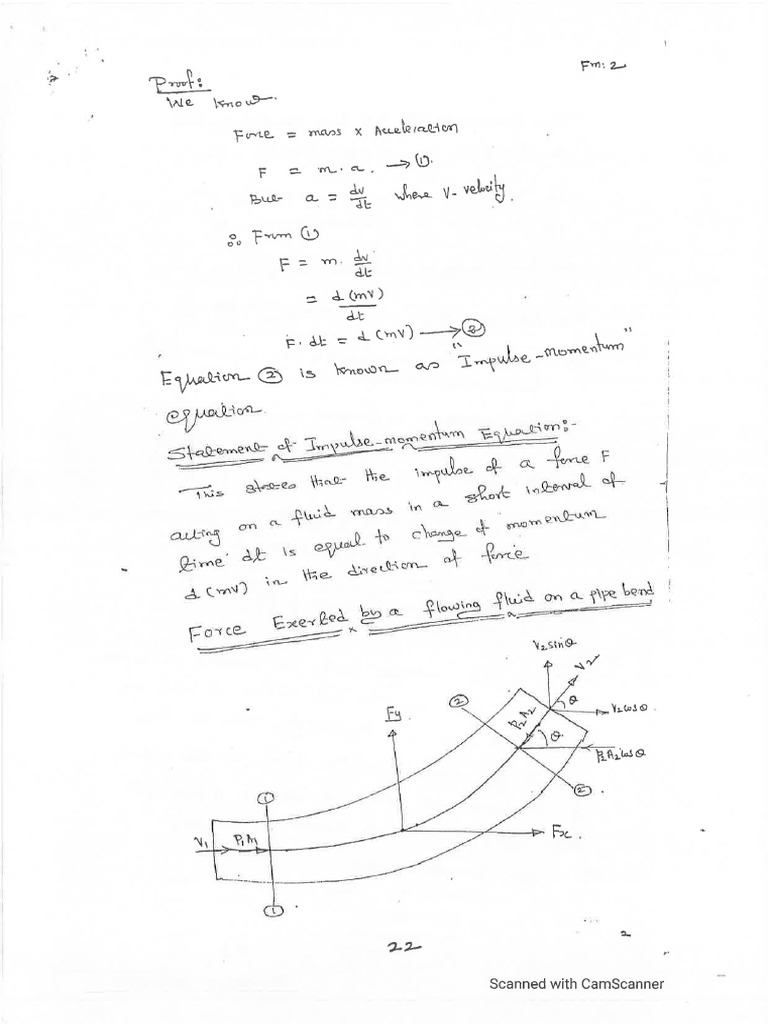 Fm: 2
Proof:
We know.
Force = mass x Acceleration
F = m. a. → ①.
But a = dv/dt where V - velocity.
∴ From ①
F = m. dv/dt
= d(mv)/dt
F. dt = d(mv) → ②
Equation ② is known as "Impulse-momentum"
equation.
Statement of Impulse-momentum Equation:-
This states that the impulse of a force F
acting on a fluid mass in a short interval of
time dt is equal to change of momentum
d(mv) in the direction of force
Force Exerted by a flowing fluid on a pipe bend
V₂sinθ
V₂
θ
V₂cosθ.
②
P₂A₂
θ.
P₂A₂cosθ
Fy
②.
①
V₁
P₁A₁
Fx.
①
22
2
Scanned with CamScanner